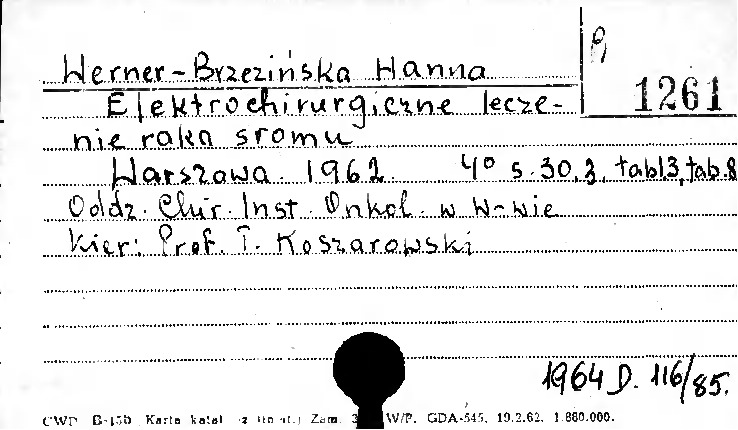 R
1261
Werner-Brzezińska Hanna
Elektrochirurgiczne lecze-
nie raka sromu
Warszawa. 1962 4° s. 30,3, tabl.3, tab.8
Oddz. Chir. Inst. Onkol. w W-wie
Kier: Prof. T. Koszarowski
1964 D. 116/85.
Karta katal Zam. W/P. GDA-545. 19.2.62. 1.880.000.